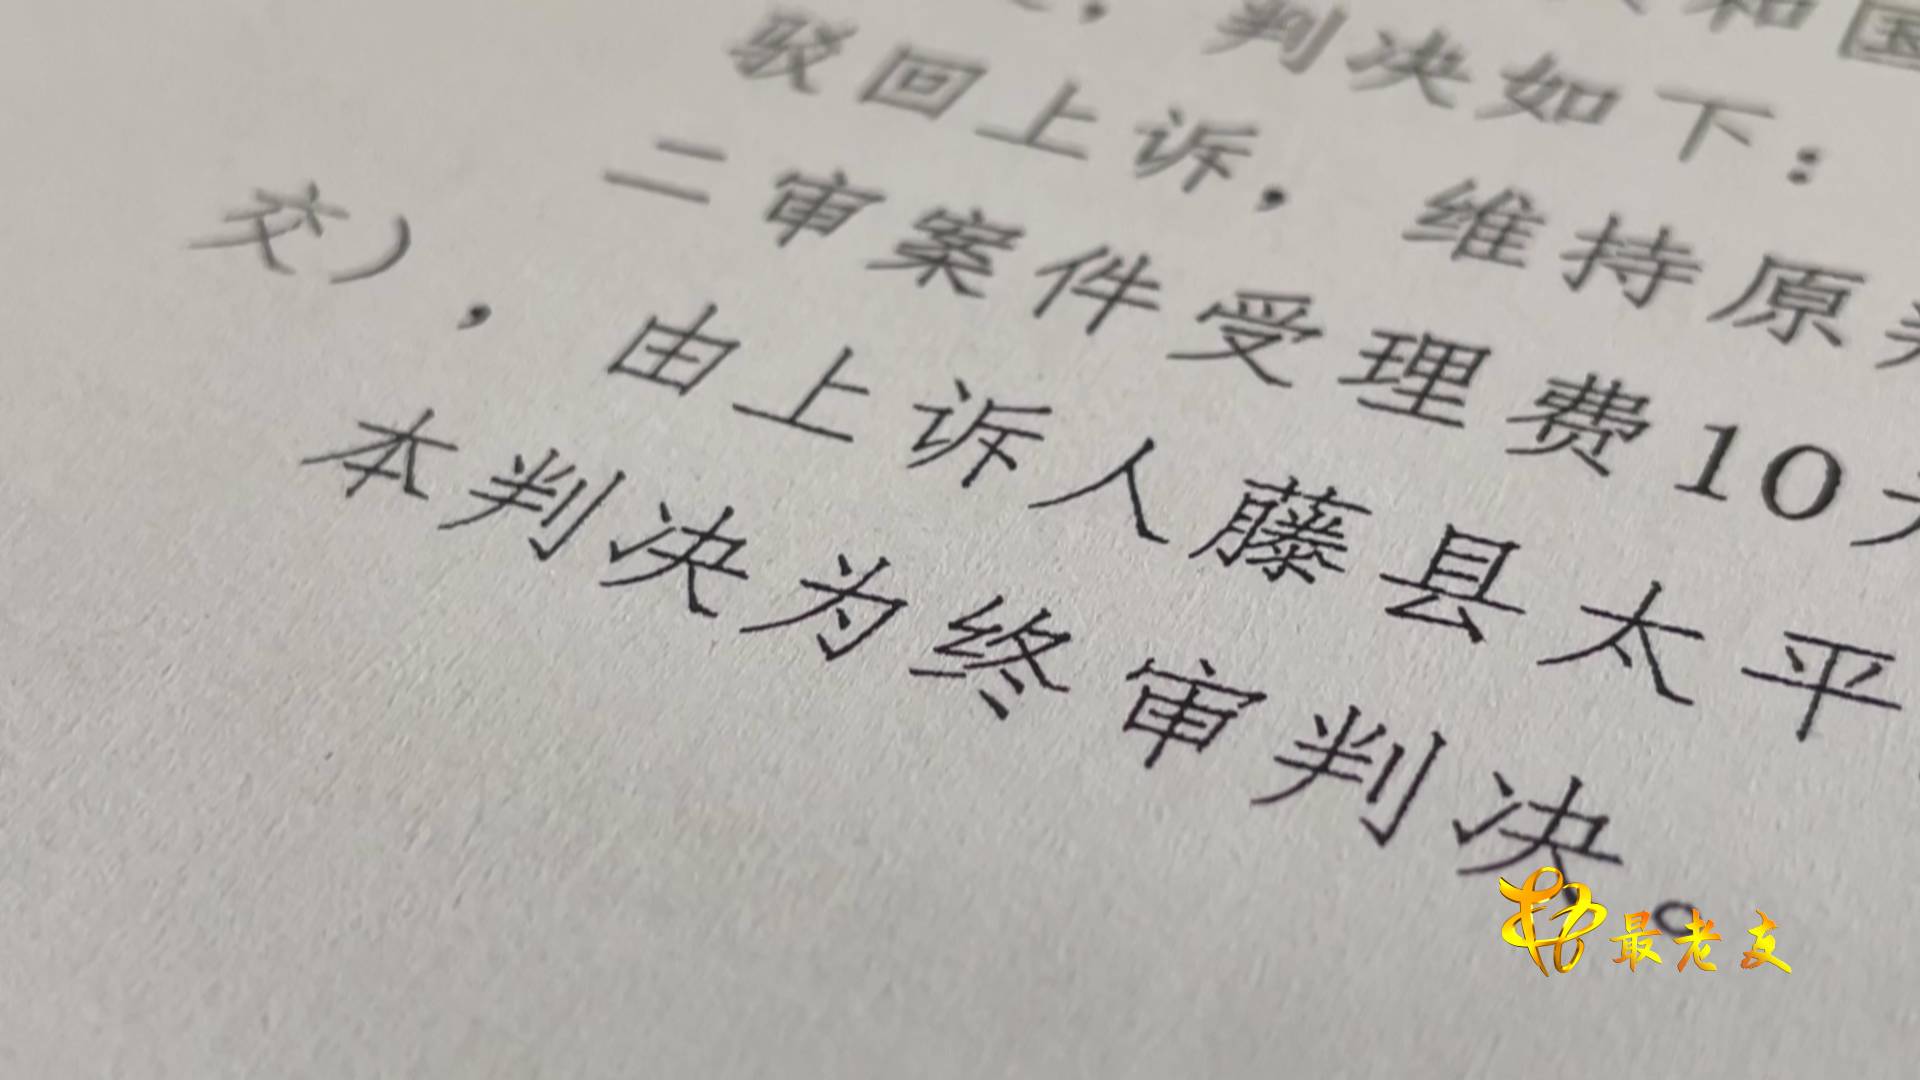 和国
，判决如下：
驳回上诉，维持原
二审案件受理费10
交），由上诉人藤县太平
本判决为终审判决。
最老友